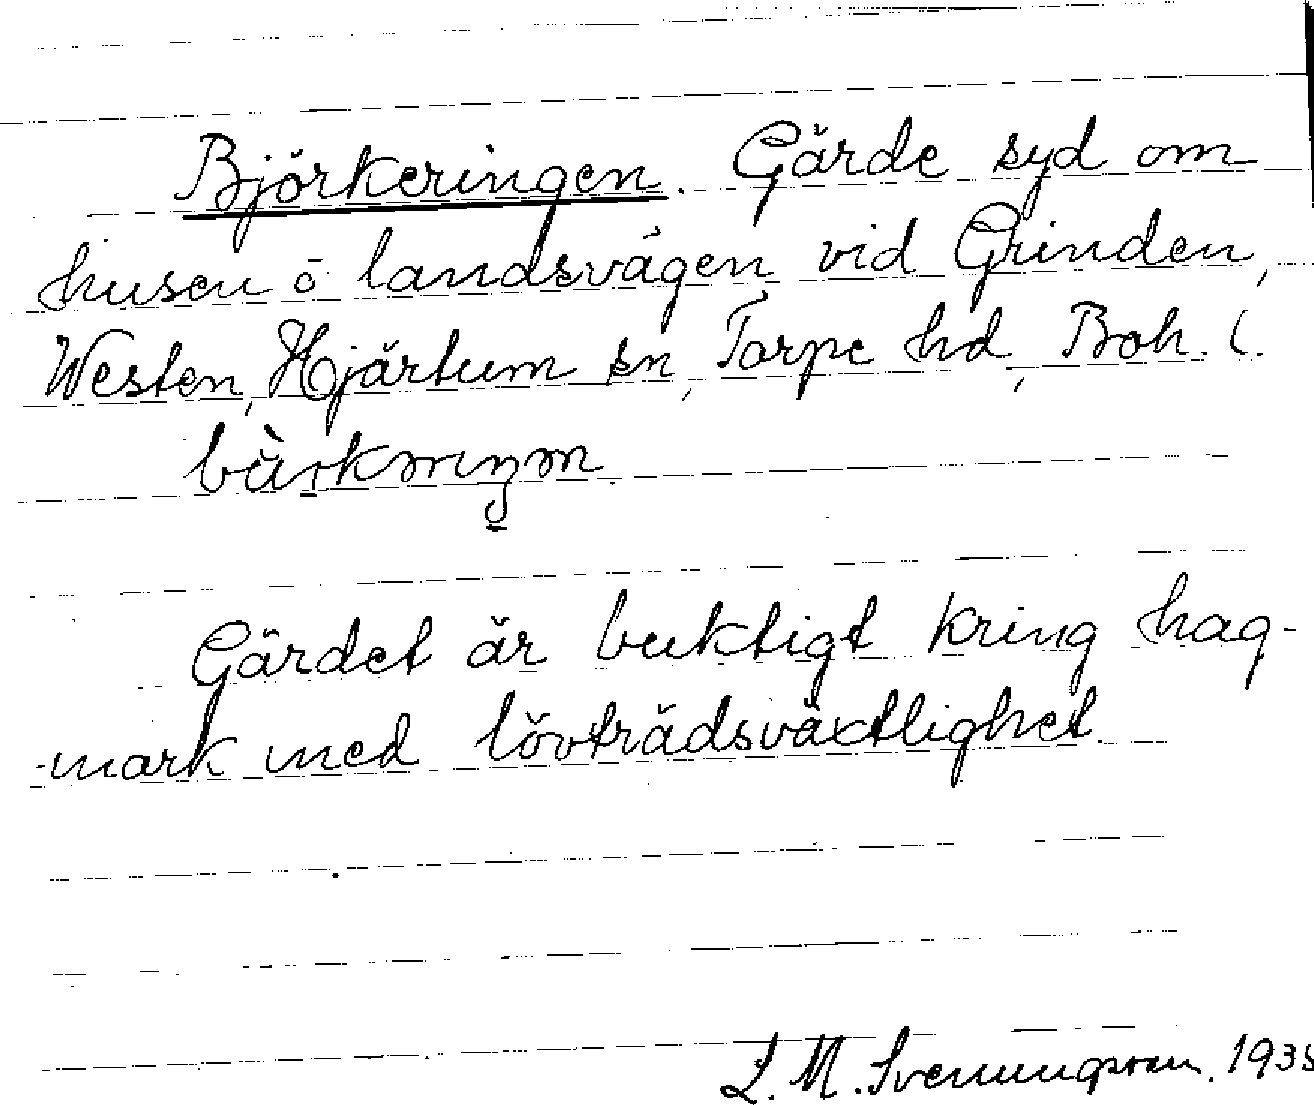 Björkeringen. Gärde syd om
husen o landsvägen vid Grinden,
Westen, Hjärtum sn, Torpe hd, Boh. l.
Gärdet är buktigt kring hag-
mark med lövträdsväxtlighet
L. M. Svenungsson. 1935